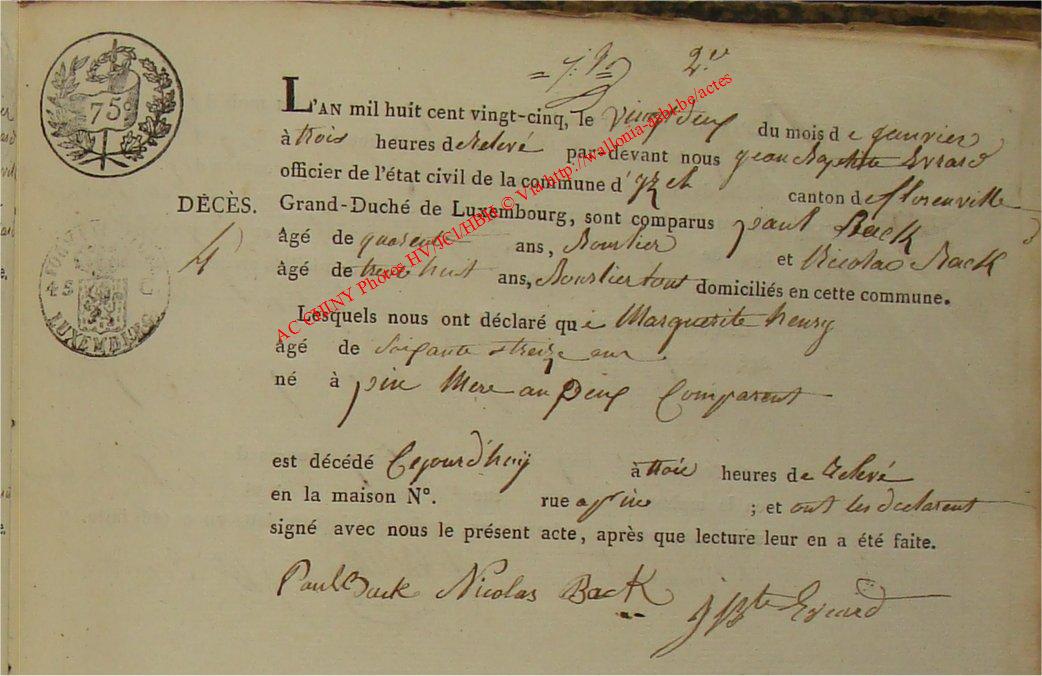 2.e
75c
L'AN mil huit cent vingt-cinq, le vingt deux du mois de janvier
à trois heures de relevé par-devant nous jean Baptiste Evrard
officier de l'état civil de la commune d'yzel canton de florenville
DÉCÈS. Grand-Duché de Luxembourg, sont comparus paul Back
âgé de quarente ans, Bourlier et Nicolas Back
âgé de trente huit ans, Bourlier tous domiciliés en cette commune.
Lesquels nous ont déclaré que Marguerite henry
âgé de soixante et treize ans
né à pin Mere au deux Comparent
est décédé Cejourd'huy à trois heures de relevé
en la maison N°. rue a pin ; et ont les declarent
signé avec nous le présent acte, après que lecture leur en a été faite.
Paul Back Nicolas Back J Bte Evrard
LUXEMBOURG
AC CHINY Photos HV/JCl/HBH © Via http://wallonia-asbl.be/actes